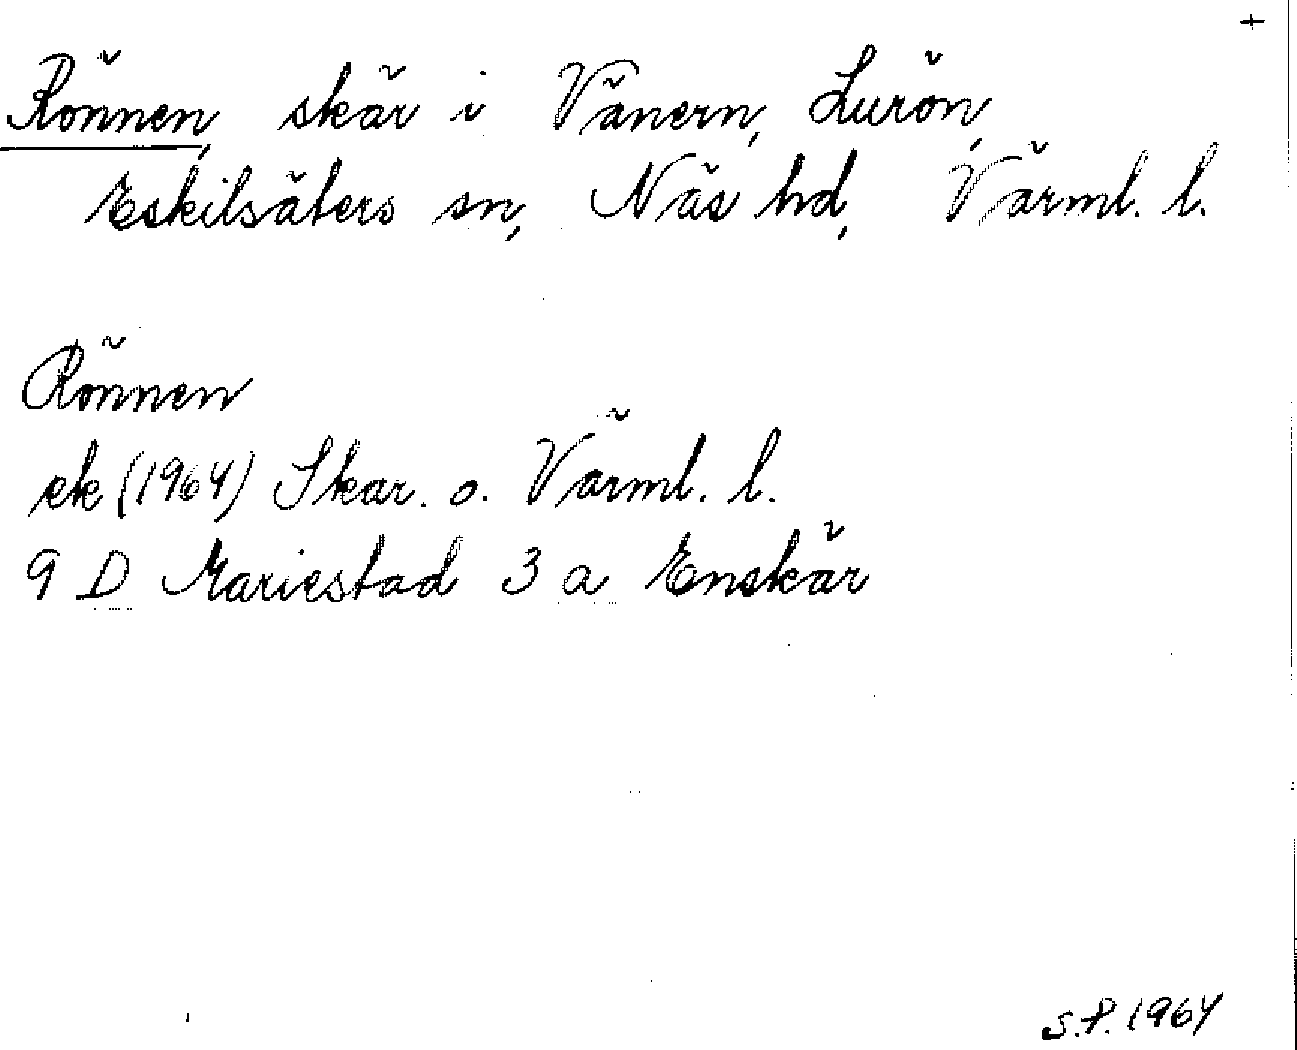 +
Rönnen, skär i Vänern, Lurön,
Eskilsäters sn, Näs hd, Värml. l.
Rönnen
ek (1964) Skar. o. Värml. l.
9 D Mariestad 3 a Enskär
S.P. 1964